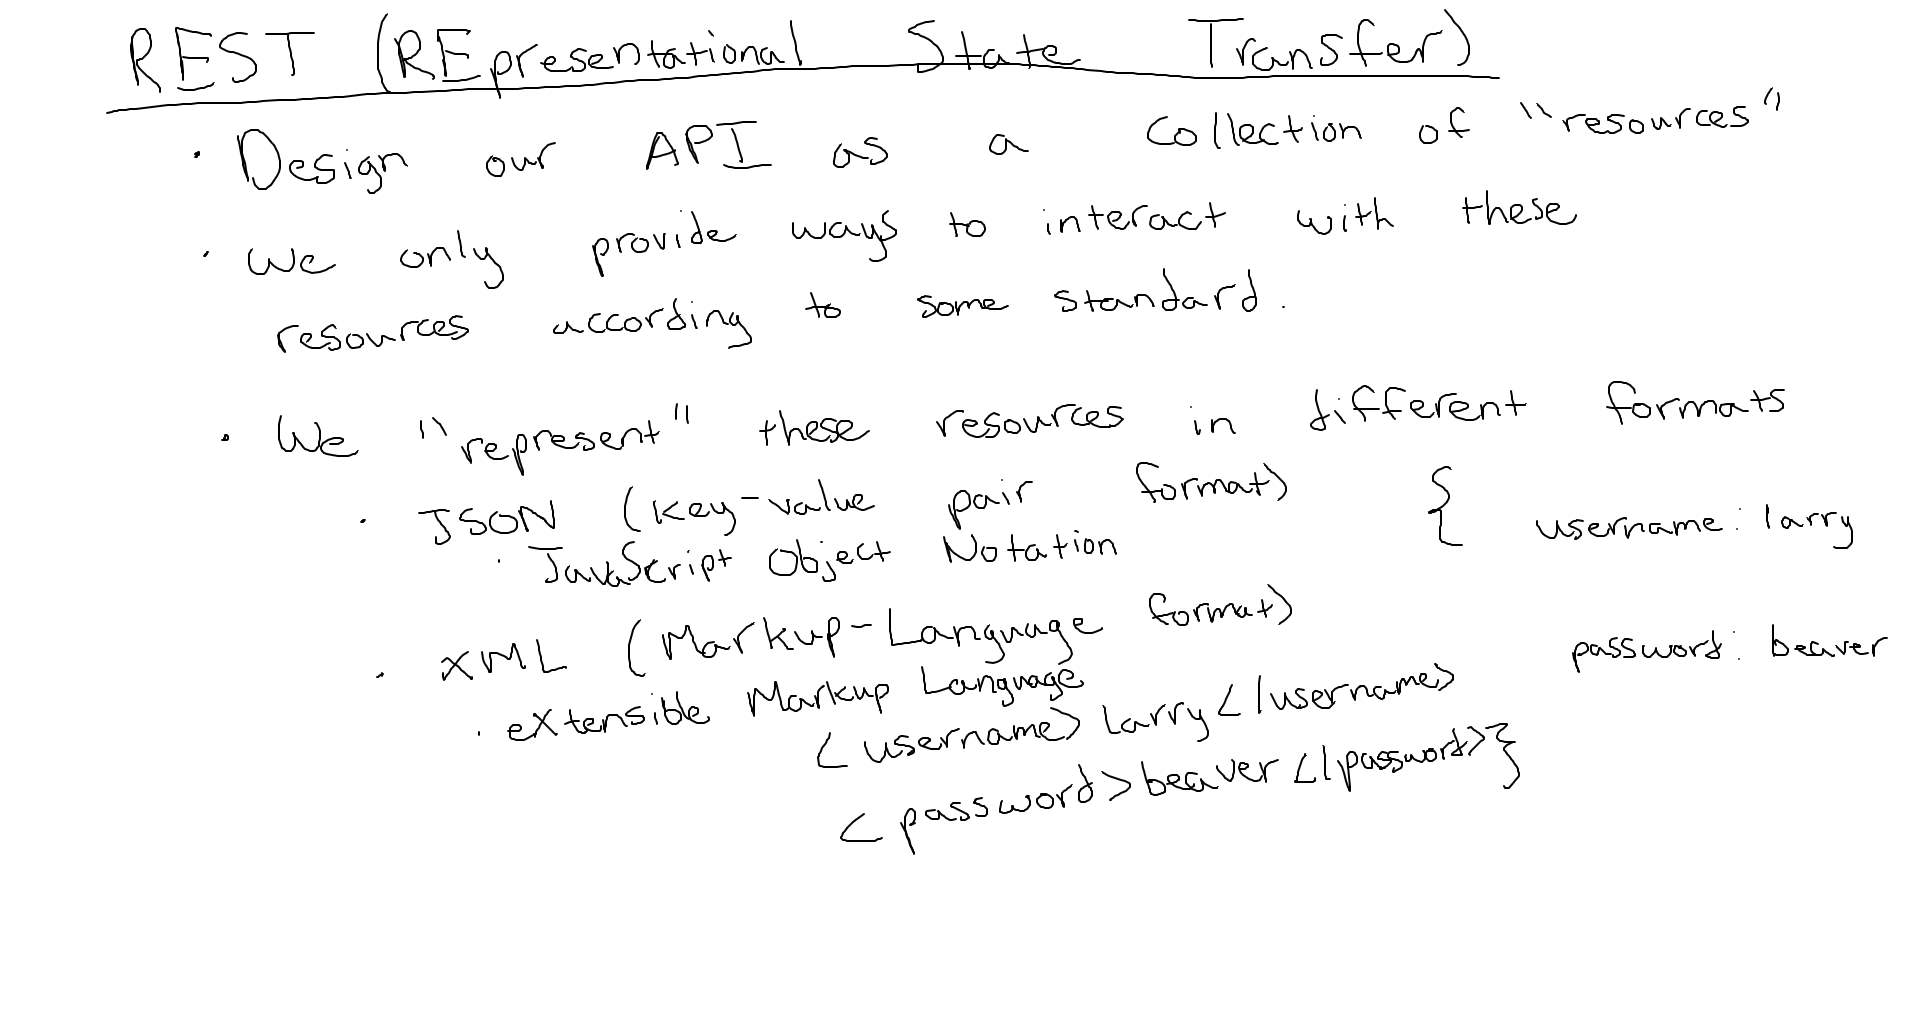 REST (REpresentational State Transfer)
· Design our API as a collection of "resources"
· We only provide ways to interact with these
resources according to some standard.
· We "represent" these resources in different formats
· JSON (key-value pair format)
· JavaScript Object Notation
{ username: larry
password: beaver
}
· XML (Markup-Language format)
· eXtensible Markup Language
<username> larry </username>
<password> beaver </password>